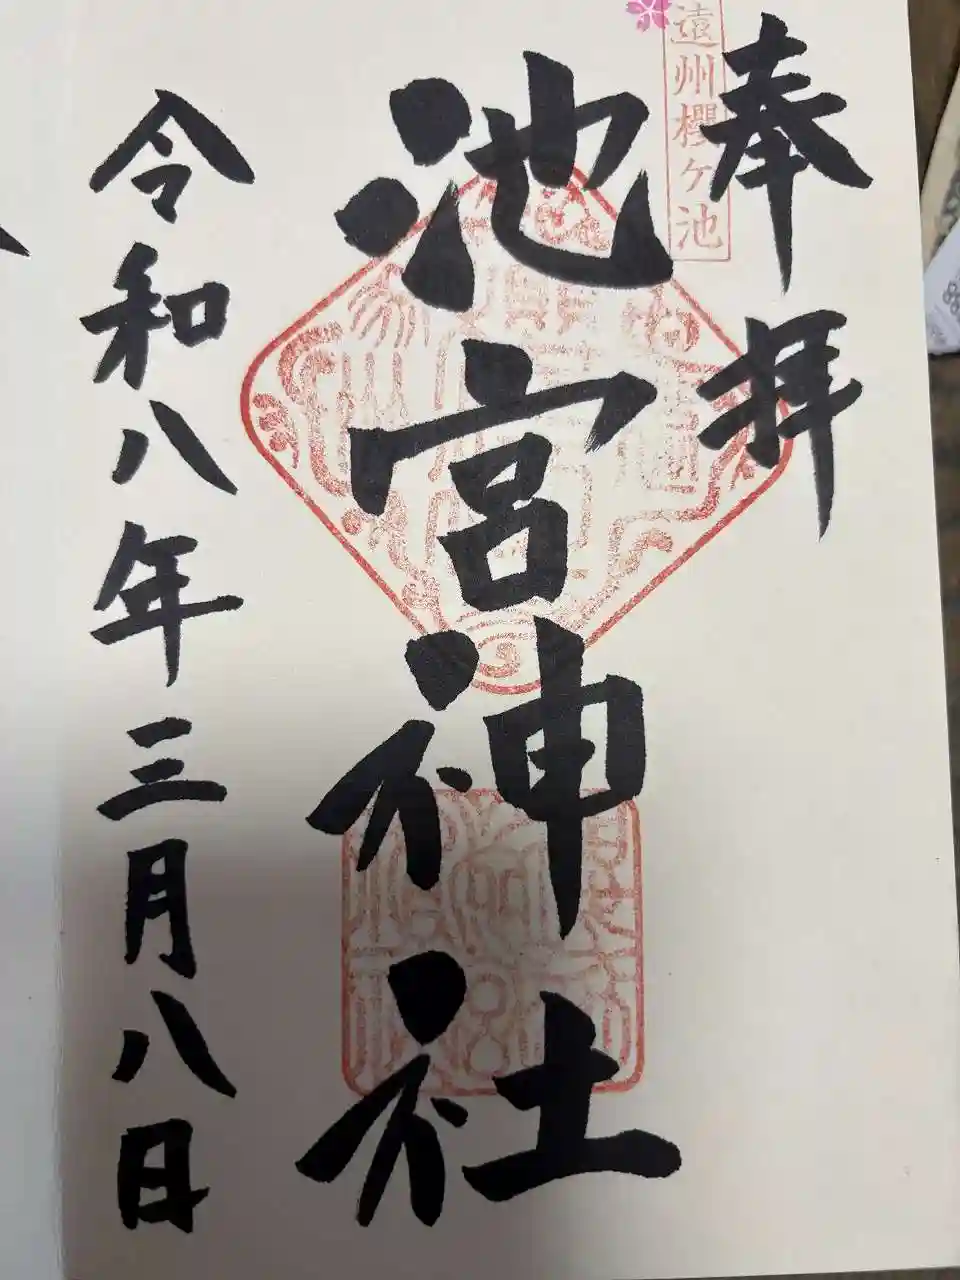 奉拝
遠州櫻ヶ池
池宮神社
令和八年三月八日